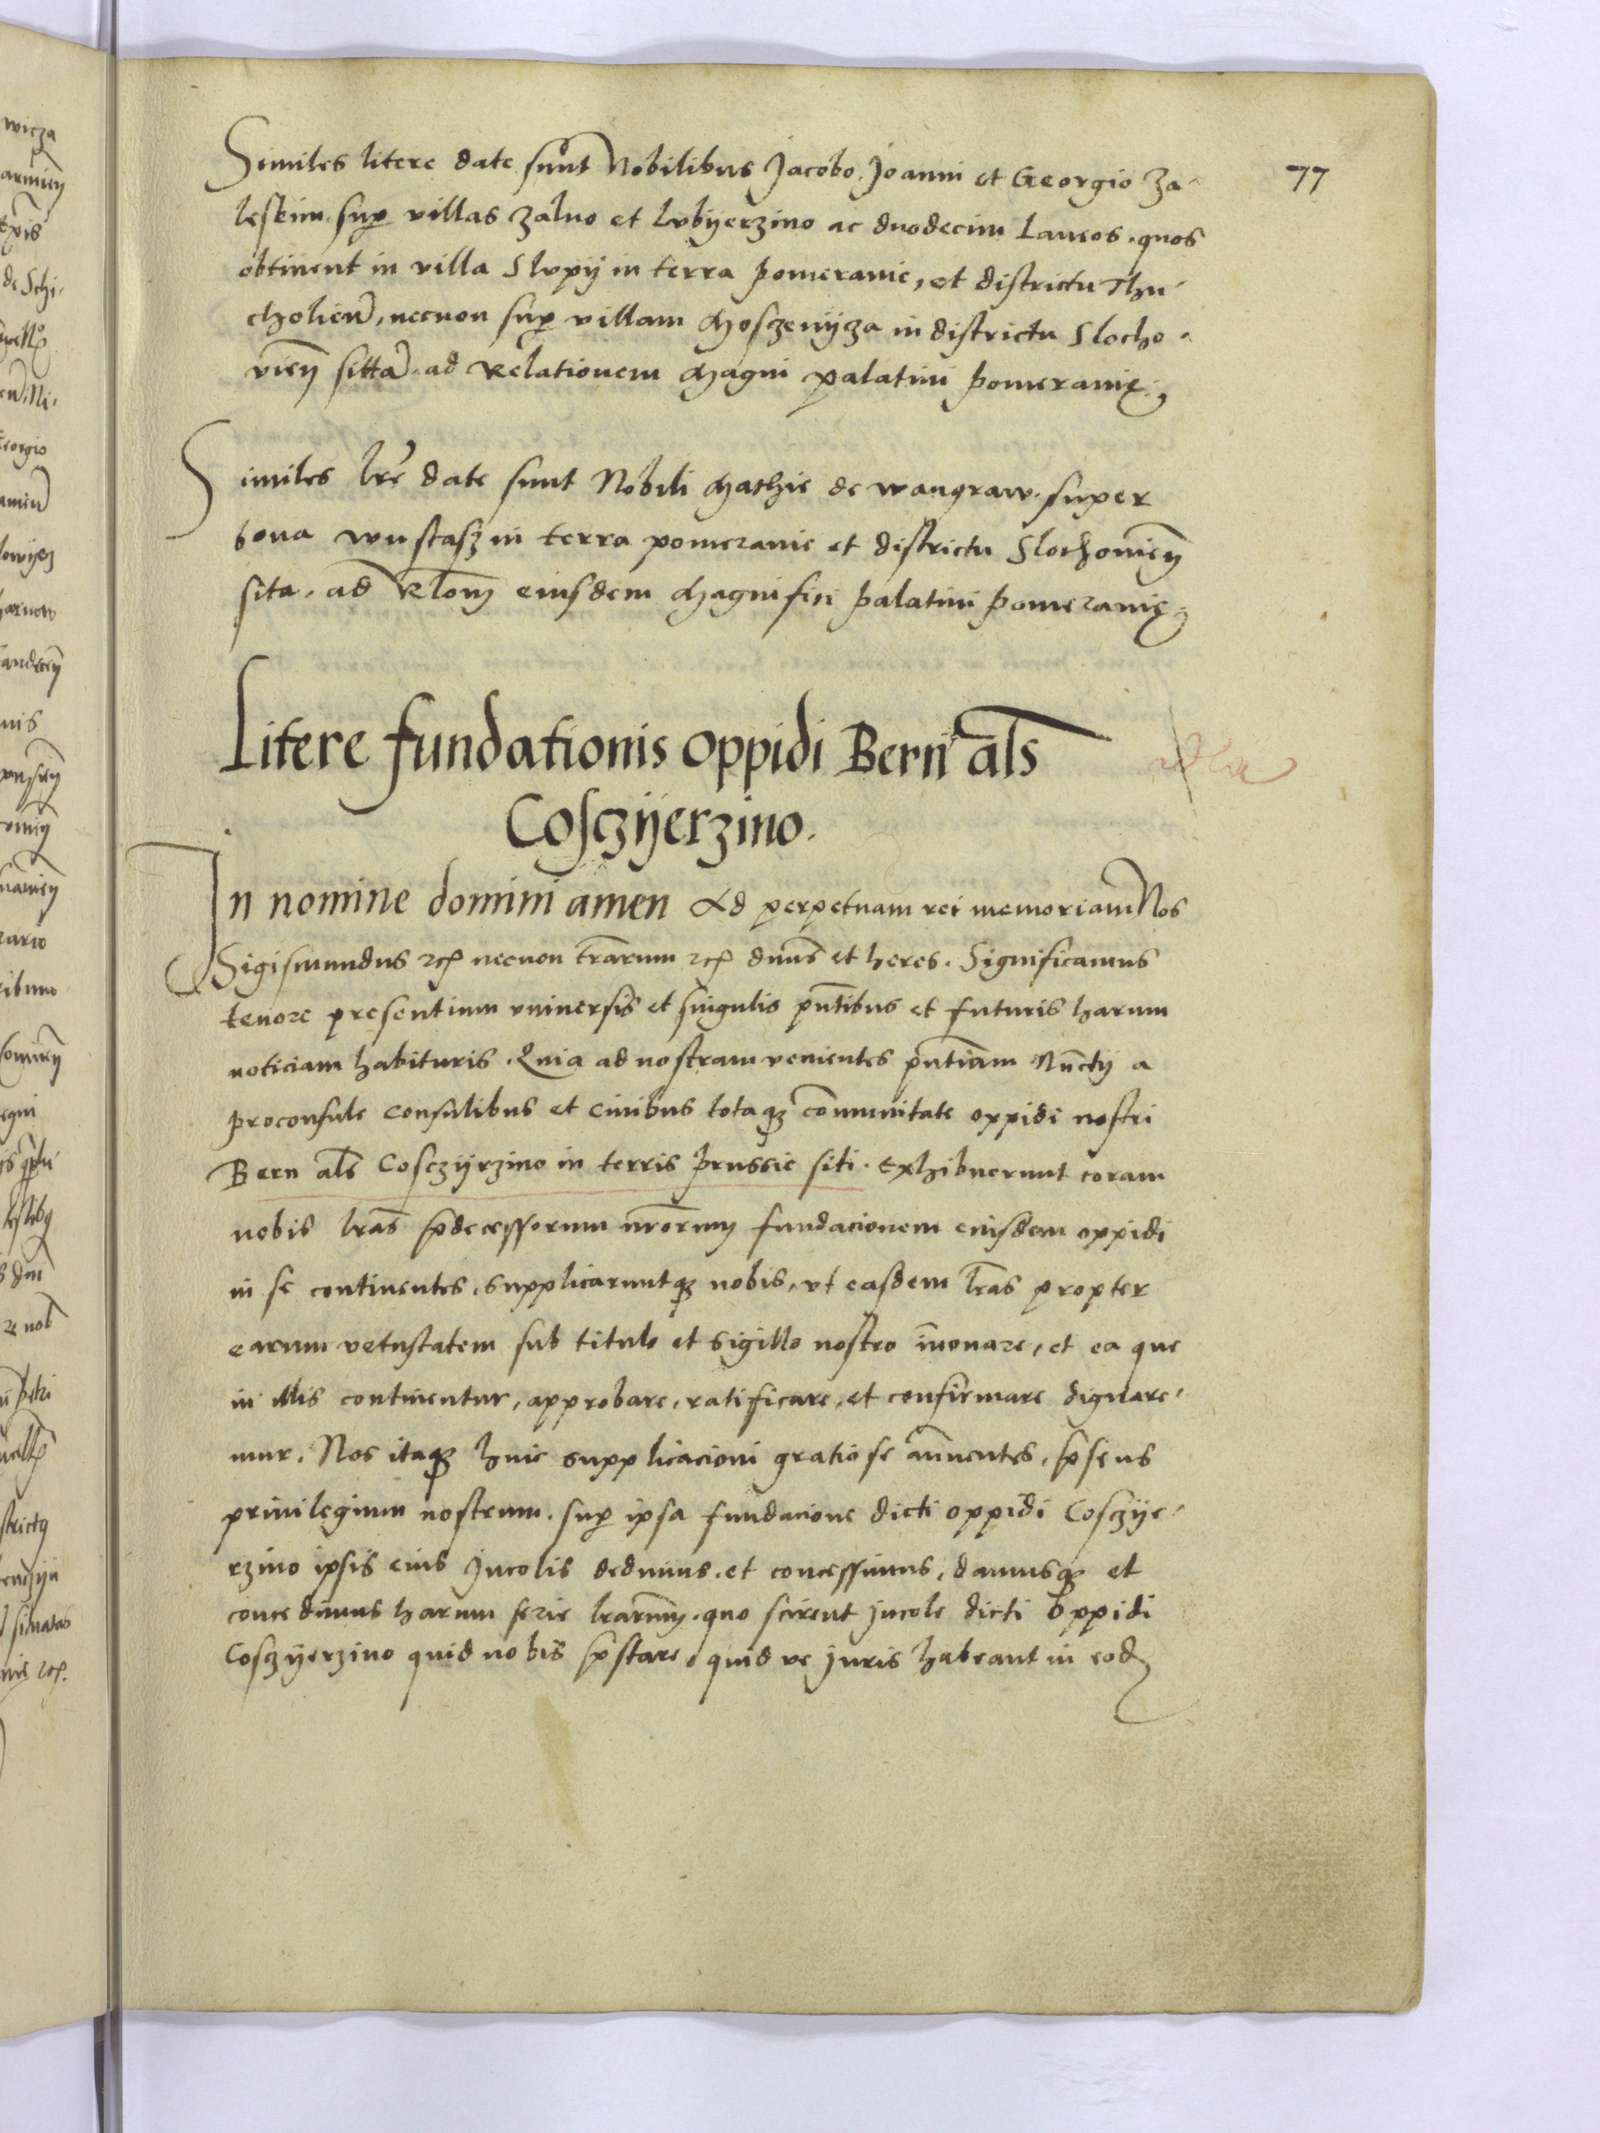 77
Similes litere date sunt Nobilibus Jacobo. Joanni et Georgio Za-
leskim. sup villas Zalno et Lvbyerzino ac duodecim Laneos. quos
obtinent in villa Slvpy in terra pomeranie, et districtu Thu-
cholien, necnon sup villam Moszenycza in districtu Slocho-
vien sitta. ad Relationem Magni palatini pomeranie.
Similes lre date sunt Nobili Mathie de wangraw. super
bona wustasz in terra pomeranie et districtu Slochovien
sita. ad Rlonem eiusdem Magnifici palatini pomeranie
Litere fundationis oppidi Bern als
Cosczyerzino.
In nomine domini amen Ad perpetuam rei memoriam Nos
Sigismundus etc necnon trarum etc dnus et heres. Significamus
tenore presentium vniuersis et singulis pntibus et futuris harum
noticiam habituris. Quia ad nostram venientes pntiam Nunctij a
proconsule consulibus et ciuibus totaq communitate oppidi nostri
Bern als Cosczyrzino in terris prussie siti. exhibuerunt coram
nobis lras pdecessorum nrorum fundacionem eiusdem oppidi
in se continentes, supplicaruntq nobis, vt easdem lras propter
earum vetustatem sub titulo et sigillo nostro innouare, et ea que
in illis continentur, approbare, ratificare, et confirmare dignare-
mur. Nos itaq huic supplicacioni gratiose annuentes, psens
priuilegium nostrum. sup ipsa fundacione dicti oppidi Cosczye-
rzino ipsis eius Jncolis dedimus. et concessimus, damusq et
concedimus harum serie lrarum. quo scirent jncole dicti oppidi
Cosczyerzino quid nobis pstare, quid ve juris habeant in eod